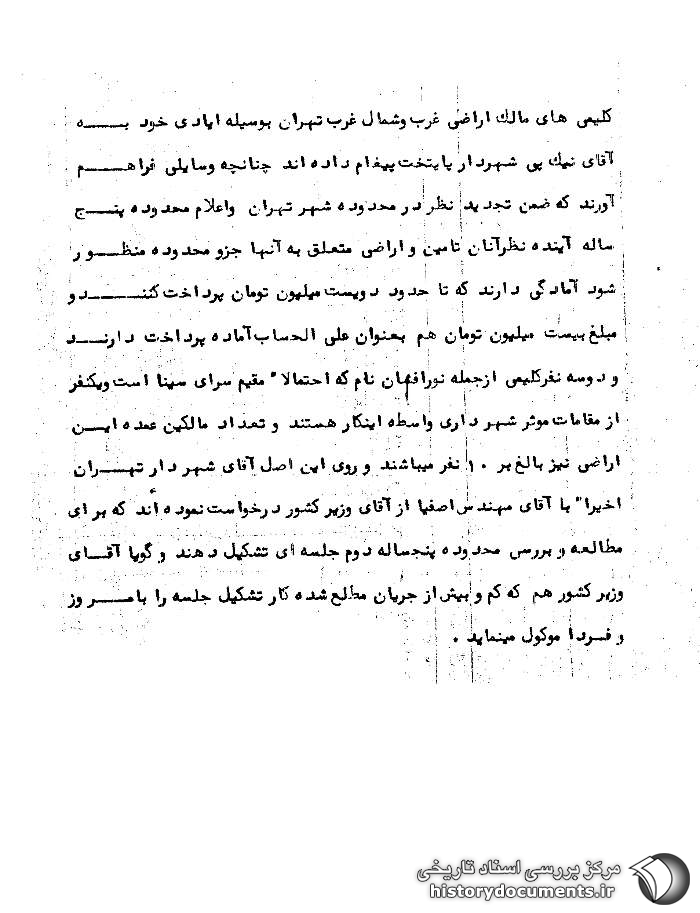 کلیمی های مالک اراضی غرب وشمال غرب تهران بوسیله ایادی خود بـــه
آقای نیک پی شهردار پایتخت پیغام داده اند چنانچه وسایلی فراهـــم
آورند که ضمن تجدید نظر در محدوده شهر تهران واعلام محدوده پنـــج
ساله آینده نظرآنان تامین و اراضی متعلق به آنها جزو محدوده منظـــور
شود آمادگی دارند که تا حدود دویست میلیون تومان پرداخت کننـــد و
مبلغ بیست میلیون تومان هم بعنوان علی الحساب آماده پرداخت دارنـــد
و دوسه نفرکلیمی ازجمله نورافهان نام که احتمالا" مقیم سرای سینا است ویکنفر
از مقامات موثر شهرداری واسطه اینکار هستند و تعداد مالکین عمده ایـــن
اراضی نیز بالغ بر ۱۰ نفر میباشند و روی این اصل آقای شهردار تهـــران
اخیرا" با آقای مهندس اصفیا از آقای وزیر کشور درخواست نموده اند که برای
مطالعه و بررسی محدوده پنجساله دوم جلسه ای تشکیل دهند و گویا آقـــای
وزیر کشور هم که کم و بیش از جریان مطلع شده کار تشکیل جلسه را بامـــروز
و فـــردا موکول مینماید .
مرکز بررسی اسناد تاریخی
historydocuments.ir